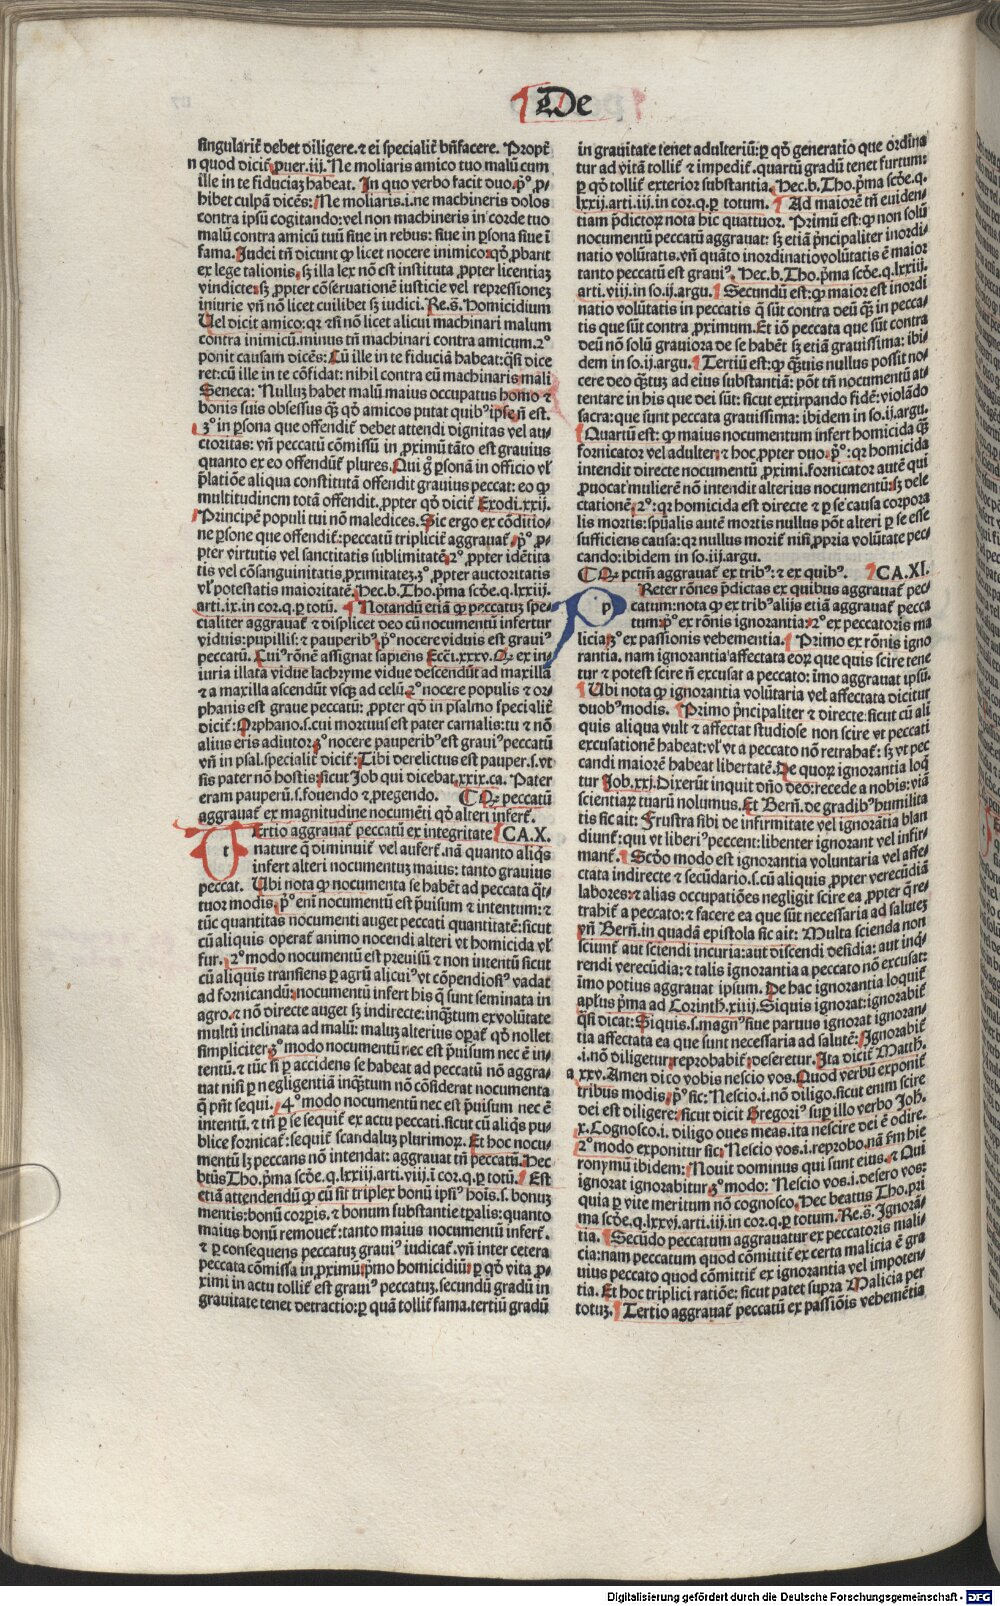 De
singularit̄ debet diligere.⁊ ei specialit̄ bn̄facere. Propt̄
n quod dicit̄ puer.iii. Ne moliaris amico tuo malū cum
ille in te fiduciaꝫ habeat. In quo verbo facit duo.p̄ꝰ ꝓ-
hibet culpā dicēs: Ne moliaris.i.ne machineris dolos
contra ipsū cogitando: vel non machineris in corde tuo
malū contra amicū tuū siue in rebus: siue in ꝑsona siue ī
fama. Judei tn̄ dicunt ꝙ licet nocere inimico: qđ ꝓbant
ex lege talionis. sꝫ illa lex nō est instituta ꝓpter licentiaꝫ
vindicte: sꝫ ꝓpter cōseruationē iusticie vel repressioneꝫ
iniurie vn̄ nō licet cuilibet sꝫ iudici. Re.s̄. Homicidium
Uel dicit amico: qꝛ ⁊si nō licet alicui machinari malum
contra inimicū.minus tn̄ machinari contra amicum.2ꝰ
ponit causam dicēs: Cū ille in te fiduciā habeat: q̄si dice
ret: cū ille in te cōfidat: nihil contra eū machinaris mali
Seneca: Nullus habet malū maius occupatus homo ⁊
bonis suis obsessus q̄ꝫ qđ amicos putat quibꝰ ipse n̄ est.
3ꝰ in ꝑsona que offendit̄ debet attendi dignitas vel au-
ctoritas: vn̄ peccatū cōmissū in ꝓximū tāto est grauius
quanto ex eo offendūt̄ plures. Qui gͦ ꝑsonā in officio vl̓
p̄latiōe aliqua constitutā offendit grauius peccat: eo ꝙ
multitudinem totā offendit. ꝓpter qđ dicit̄ Exodi.xxij.
Principē populi tui nō maledices. Sic ergo ex cōditio-
ne ꝑsone que offendit̄: peccatū triplicit̄ aggrauat̄. p̄ꝰ ꝓ-
pter virtutis vel sanctitatis sublimitatē. 2ꝰ ꝓpter idētita
tis vel cōsanguinitatis ꝓximitateꝫ. 3ꝰ ꝓpter auctoritatis
vl̓ potestatis maioritatē. Hec.b. Tho.p̄ma scd̄e.q.lxxiij.
arti.ix.in cor.q.ꝑ totū. Notandū etiā ꝙ peccatuꝫ spe-
cialiter aggrauat̄ ⁊ displicet deo cū nocumentū infertur
viduis: pupillis: ⁊ pauperibꝰ. p̄ꝰ nocere viduis est grauiꝰ
peccatū. Cuiꝰ rōnē assignat sapiens Ecc̄i.xxxv. Qꝛ ex in-
iuria illata vidue lachryme vidue descendūt ad maxillā
⁊ a maxilla ascendūt vsqꝫ ad celū. 2ꝰ nocere populis ⁊ or-
phanis est graue peccatū: ꝓpter qđ in psalmo specialit̄
dicit̄: Orphano.s.cui mortuus est pater carnalis: tu ⁊ nō
alius eris adiutor. 3ꝰ nocere pauperibꝰ est grauiꝰ peccatū
vn̄ in psal.specialit̄ dicit̄: Tibi derelictus est pauper.s.vt
sis pater nō hostis: sicut Job qui dicebat.xxix.ca. Pater
eram pauperū.s.fouendo ⁊ ꝓtegendo. Qꝛ peccatū
aggrauat̄ ex magnitudine nocumēti qđ alteri infert̄.
t Ertio aggrauat̄ peccatū ex integritate CA.X.
nature q̄ diminuit̄ vel aufert̄. nā quanto aliq̄s
infert alteri nocumentuꝫ maius: tanto grauius
peccat. Ubi nota ꝙ nocumenta se habēt ad peccata q̄t-
tuor modis. p̄ꝰ eni̅ nocumentū est p̄uisum ⁊ intentum: ⁊
tūc quantitas nocumenti auget peccati quantitatē: sicut
cū aliquis operat̄ animo nocendi alteri vt homicida vl̓
fur. 2ꝰ modo nocumentū est preuisū ⁊ non intentū sicut
cū aliquis transiens ꝑ agrū alicuiꝰ vt cōpendiosiꝰ vadat
ad fornicandū: nocumentū infert his q̄ sunt seminata in
agro. ⁊ nō directe auget sꝫ indirecte: inq̄ꝫtum ex volūtate
multū inclinata ad malū: maluꝫ alterius oꝑat̄ qđ nollet
simpliciter. 3ꝰ modo nocumentū nec est p̄uisum nec ē in-
tentū. ⁊ tūc si ꝑ accidens se habeat ad peccatū nō aggra-
uat nisi ꝑ negligentiā inq̄ꝫtum nō cōsiderat nocumenta
q̄ pn̄t sequi. 4ꝰ modo nocumentū nec est p̄uisum nec ē
intentū. ⁊ tn̄ ꝑ se sequit̄ ex actu peccati. sicut cū aliq̄s pu-
blice fornicat̄: sequit̄ scandaluꝫ plurimoꝝ. Et hoc nocu-
mentū lꝫ peccans nō intendat: aggrauat tn̄ peccatū. Hec
bt̄us Tho.p̄ma scd̄e.q.lxxiij.arti.viij.i cor.q.ꝑ totū. Est
etiā attendendū ꝙ cū sit triplex bonū ipsiꝰ hoīs.s. bonuꝫ
mentis: bonū corꝑis. ⁊ bonum substantie tꝑalis: quanto
maius bonū remouet̄: tanto maius nocumentū infert̄.
⁊ ꝑ consequens peccatuꝫ grauiꝰ iudicat̄. vn̄ inter cetera
peccata cōmissa in ꝓximū p̄mo homicidiū: ꝑ qđ vita ꝓ-
ximi in actu tollit̄ est grauiꝰ peccatuꝫ. secundū gradū in
grauitate tenet detractio: ꝑ quā tollit̄ fama. tertiū gradū
in grauitate tenet adulteriū: ꝑ qđ generatio que ordina
tur ad vitā tollit̄ ⁊ impedit̄. quartū gradū tenet furtum:
ꝑ qđ tollit̄ exterior substantia. Hec.b.Tho.p̄ma scd̄e.q.
lxxij.arti.iij.in cor.q.ꝑ totum. Ad maiorē tn̄ euiden-
tiam p̄dictoꝝ nota hic quattuor. Primū est: ꝙ non solū
nocumentū peccatū aggrauat: sꝫ etiā p̄ncipaliter inordi-
natio volūtatis. vn̄ quāto inordinatio volūtatis ē maior
tanto peccatū est grauiꝰ. Hec.b.Tho.p̄ma scd̄e.q.lxxiij.
arti.viij.in so.ij.argu. Secundū est: ꝙ maior est inordi
natio volūtatis in peccatis q̄ sūt contra deū q̄ꝫ in pecca-
tis que sūt contra ꝓximum. Et iō peccata que sūt contra
deū nō solū grauiora de se habēt sꝫ etiā grauissima: ibi-
dem in so.ij.argu. Tertiū est: ꝙ q̄ꝫuis nullus possit no-
cere deo q̄ꝫtuꝫ ad eius substantiā: pōt tn̄ nocumentū at-
tentare in his que dei sūt: sicut extirpando fidē: violādo
sacra: que sunt peccata grauissima: ibidem in so.ij.argu.
Quartū est: ꝙ maius nocumentum infert homicida q̄ꝫ
fornicator vel adulter: ⁊ hoc ꝓpter duo. p̄ꝰ: qꝛ homicida
intendit directe nocumentū ꝓximi. fornicator autē qui
ꝓuocat mulierē nō intendit alterius nocumentū: sꝫ dele
ctationē. 2ꝰ: qꝛ homicida est directe ⁊ ꝑ se causa corpora
lis mortis: spūalis autē mortis nullus pōt alteri ꝑ se esse
sufficiens causa: qꝛ nullus morit̄ nisi ꝓpria volūtate pec
cando: ibidem in so.iij.argu.
Qꝛ pctm̄ aggrauat̄ ex tribꝰ: ⁊ ex quibꝰ. CA.XI.
p Reter rōnes p̄dictas ex quibus aggrauat̄ pec
catum: nota ꝙ ex tribꝰ alijs etiā aggrauat̄ pecca
tum: p̄ꝰ ex rōnis ignorantia: 2ꝰ ex peccatoris ma
licia: 3ꝰ ex passionis vehementia. Primo ex rōnis igno
rantia. nam ignorantia affectata eoꝝ que quis scire tene
tur ⁊ potest scire n̄ excusat a peccato: īmo aggrauat ipsū.
Ubi nota ꝙ ignorantia volūtaria vel affectata dicitur
duobꝰ modis. Primo p̄ncipaliter ⁊ directe: sicut cū ali
quis aliqua vult ⁊ affectat studiose non scire vt peccati
excusationē habeat: vl̓ vt a peccato nō retrahat̄: sꝫ vt pec
candi maiorē habeat libertatē. De quoꝝ ignorantia loq̄
tur Job.xxi. Dixerūt inquit dn̄o deo: recede a nobis: viā
scientiaꝝ tuarū nolumus. Et Bern̄. de gradibꝰ humilita
tis sic ait: Frustra sibi de infirmitate vel ignorātia blan
diunt̄: qui vt liberiꝰ peccent: libenter ignorant vel infir-
mant̄. Scd̄o modo est ignorantia voluntaria vel affe-
ctata indirecte ⁊ secūdario.s.cū aliquis ꝓpter verecūdiā
labores: ⁊ alias occupatiōes negligit scire ea ꝓpter q̄ re-
trahit̄ a peccato: ⁊ facere ea que sūt necessaria ad saluteꝫ
vn̄ Bern̄.in quadā epistola sic ait: Multa scienda non
sciunt̄ aut sciendi incuria: aut discendi desidia: aut inq̄-
rendi verecūdia: ⁊ talis ignorantia a peccato nō excusat:
īmo potius aggrauat ipsum. De hac ignorantia loquit̄
apl̓us p̄ma ad Corinth.xiiij. Siquis ignorat: ignorabit̄
q̄si dicat: Siquis.s.magnꝰ siue paruus ignorat ignoran-
tia affectata ea que sunt necessaria ad salutē: Ignorabit̄
.i.nō diligetur: reprobabit̄: deseretur. Ita dicit̄ Matth.
a xxv. Amen dico vobis nescio vos. Quod verbū exponit̄
tribus modis. p̄ꝰ sic: Nescio.i.nō diligo. sicut enim scire
dei est diligere: sicut dicit Gregoriꝰ suꝑ illo verbo Joh.
x. Cognosco.i. diligo oues meas. ita nescire dei ē odire.
2ꝰ modo exponitur sic: Nescio vos.i.reprobo. nā fm̄ hie
ronymū ibidem: Nouit dominus qui sunt eius. ⁊ Qui
ignorat ignorabitur. 3ꝰ modo: Nescio vos.i.desero vos:
quia ꝑ vite meritum nō cognosco. Hec beatus Tho.pri
ma scd̄e.q.lxxvj.arti.iij.in cor.q.ꝑ totum. Re.s̄. Ignorā-
tia. Secūdo peccatum aggrauatur ex peccatoris mali-
cia: nam peccatum quod cōmittit̄ ex certa malicia ē gra
uius peccato quod cōmittit̄ ex ignorantia vel impoten-
tia. Et hoc triplici ratiōe: sicut patet supra Malicia per
totuꝫ. Tertio aggrauat̄ peccatū ex passiōis vehemētia
Digitalisierung gefördert durch die Deutsche Forschungsgemeinschaft - DFG